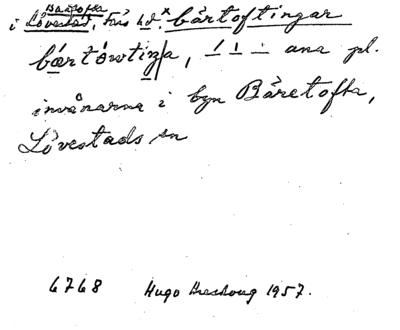 Båretofta
i Lövestad, Färs hd. bårtoftingar
bœrtówtiŋa, ⊥ ⊥ – ana pl.
invånarna i byn Båretofta,
Lövestads sn
6768 Hugo Areskoug 1957.